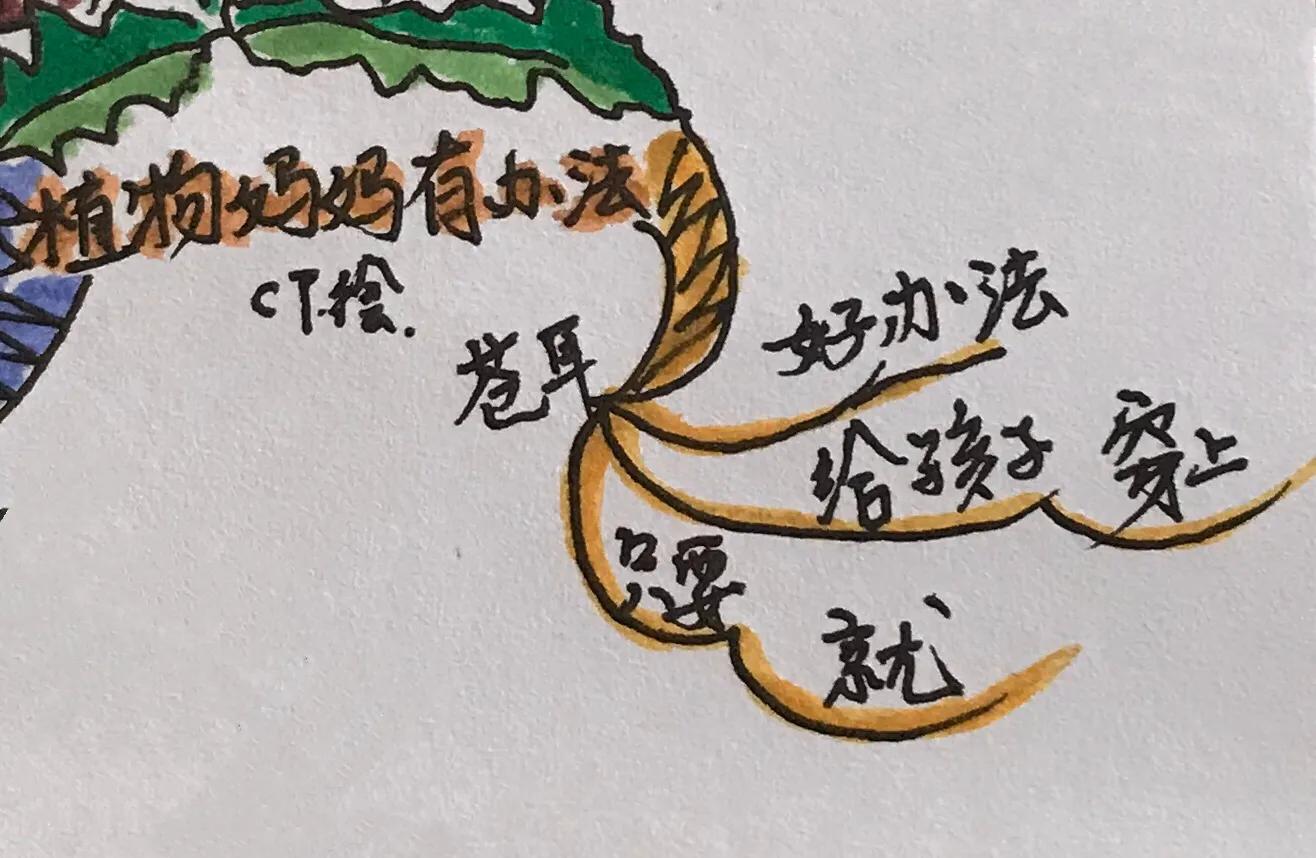 植物妈妈有办法
CT.绘.
苍耳
好办法
给孩子 穿上
只要
就